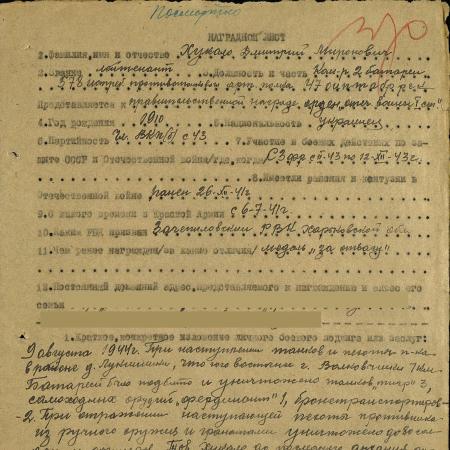 Посмертно
НАГРАДНОЙ ЛИСТ
2.Фамилия, имя и отчество Хукало Дмитрий Миронович
2.Звание лейтенант 3.Должность и часть Ком-р 2 батареи
578 истреб. противотанков арт. полка 47
Представляется к правительственной награде орден отеч. войны I ст"
4.Год рождения 1910 5.Национальность украинец
6.Партийность Чл. ВКП(б) с 43 7.Участие в боевых действиях по за-
щите СССР и Отечественной войне/где, когда
8.Имеет ли ранения и контузии в
Отечественной войне ранен 26-XII-41г.
9.С какого времени в Красной Армии с 6-7-41г.
10.Каким РВК призван Зачепиловским РВК Харьковской обл.
11.Чем ранее награжден/за какие отличия/ медаль „за отвагу"
12.Постоянный домашний адрес, представляемого к награждению и адрес его
семьи
1.Краткое, конкретное изложение личного боевого подвига или заслуг:
9 августа 1944г. При наступлении танков и пехоты п-ка
в районе д. что восточнее г. Волковышки 7 км
Батареей было подбито и уничтожено танков „тигр" 3,
самоходных орудий „фердинант" 1, бронетранспортеров-
2. При отражении наступающей пехоты противника
из ручного оружия и гранатами уничтожено до
Тов. Хукало до последнего дыхания